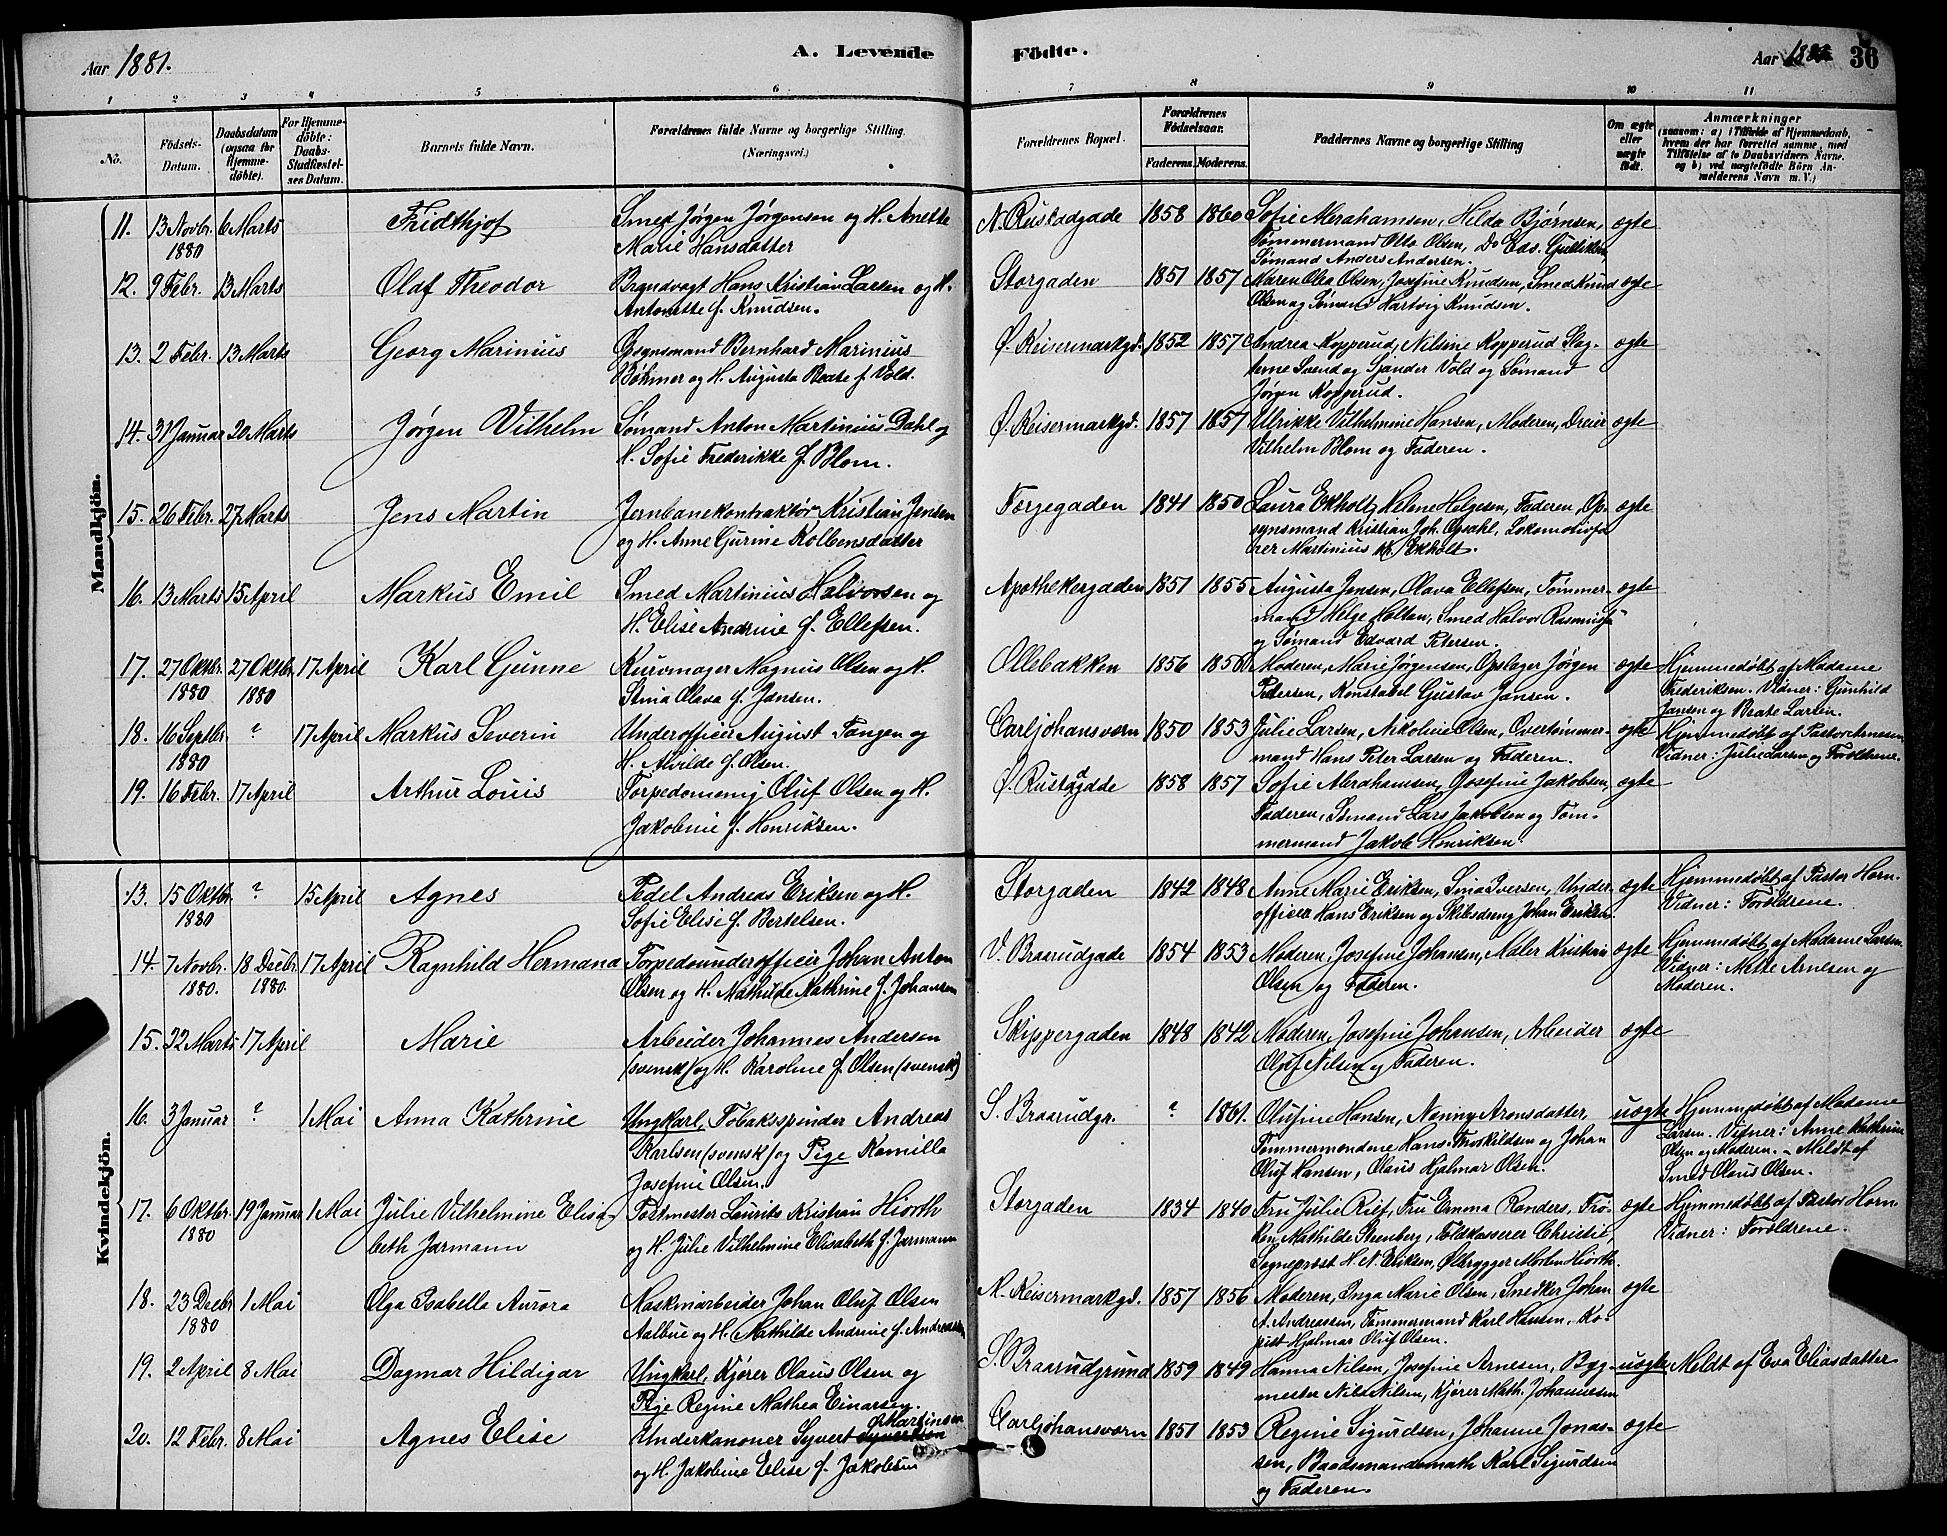 Aar 1881.
A. Levende
Fødte.
Aar 1881
36
1 2 3 4 5 6 7 8 9 10 11
No.
Födsels-Datum.
Daabsdatum (ogsaa for Hjemmedöbte).
For Hjemmedöbte: Daabs-Stadfæstelses Datum.
Barnets fulde Navn.
Forældrenes fulde Navne og borgerlige Stilling. (Næringsvei.)
Forældrenes Bopæl.
Forældrenes Födselsaar.
Faderens. Moderens.
Faddernes Navne og borgerlige Stilling
Om ægte eller uægte födt.
Anmærkninger
(saasom: a) i Tilfælde af Hjemmedaab, hvem der har forrettet samme, med Tilföielse af to Daabsvidners Navne, og b) ved uægtefödte Börn Anmelderens Navn m. V.)
Mandkjön.
11. 13 Novbr. 1880 6 Marts Fridthjof Smed Jørgen Jørgensen og H. Anette
Marie Hansdatter
N. Rustadgade 1858 1860 Sofie Abrahamsen, Hilda Bjørnsen, ægte
Tømmermand Otto Olsen, Do Edv. Gulliksen
Sømand Anders Andersen.
12. 9 Febr. 13 Marts Olaf Theodor Brandvagt Hans Kristian Larsen og H.
Antonette f. Knudsen.
Storgaden 1851 1857 Maren Olea Olsen, Josefine Knudsen, Smed Knud ægte
Olsen og Sømand Hartvig Knudsen.
13. 2 Febr. 13 Marts Georg Marinius Opsynsmand Bernhard Marinius
Bøhmer og H. Augusta Beate f. Vold.
Ø. Keisermarkgd. 1852 1857 Andrea Kopperud, Nilsine Kopperud Slag- ægte
terne Svend og Sjander Vold og Sømand
Jørgen Kopperud.
14. 31 Januar 20 Marts Jørgen Vilhelm Sømand Anton Martinius Dahl og
H. Sofie Frederikke f. Blom.
Ø. Keisermarkgd. 1857 1857 Ulrikke Vilhelmine Hansen, Moderen, Dreier ægte
Vilhelm Blom og Faderen.
15. 26 Febr. 27 Marts Jens Martin Jernbanekontraktør Kristian Jensen
og H. Anne Gurine Kolbensdatter
Torjegaden 1841 1850 Laura Ekholt, Helene Helgesen, Faderen, Op- ægte
synsmand Kristian Joh. Opdahl, Lokomotivfø
rer Martinius Ekholt.
16. 13 Marts 15 April Markus Emil Smed Martinius Halvorsen og
H. Elise Andrine f. Ellefsen.
Apothekergaden 1851 1855 Augusta Jensen, Olava Ellefsen, Tømmer- ægte
mand Helge Holtan, Smed Halvor Rasmussen
og Sømand Edvard Petersen.
17. 27 Oktbr. 1880 27 Oktbr. 1880 17 April Karl Gunne Kurvmager Magnus Olsen og H.
Stina Olava f. Jansen.
Ollebakken 1856 1856 Moderen, Marie Jørgensen, Opslager Jørgen ægte
Petersen, Konstabel Gustav Jansen.
Hjemmedøbt af Madame
Frederiksen. Vidner: Gunhild
Jansen og Beate Larsen.
18. 16 Septbr. 1880 ? 17 April Markus Severin Underofficer August Tangen og
H. Alvilde f. Olsen.
Carljohansværn 1850 1853 Julie Larsen, Nikoline Olsen, Overtømmer- ægte
mand Hans Peter Larsen og Faderen.
Hjemmedøbt af Pastor Arnesen
Vidner: Julie Larsen og Forældrene.
19. 16 Febr. 17 April Arthur Louis Torpedomenig Oluf Olsen og H.
Jakobine f. Henriksen.
Ø. Rustadgade 1858 1857 Sofie Abrahamsen, Josefine Jakobsen, ægte
Faderen, Sømand Lars Jakobsen og Tøm-
mermand Jakob Henriksen.
Kvindekjön.
13. 15 Oktbr. 1880 ? 15 April Agnes Pedel Andreas Eriksen og H.
Sofie Elise f. Bertelsen.
Storgaden 1842 1848 Anne Marie Eriksen, Lina Iversen, Under- ægte
officer Hans Eriksen og Skibsdreng Johan Eriksen
Hjemmedøbt af Pastor Horn.
Vidner: Forældrene.
14. 7 Novbr. 1880. 18 Decbr. 1880. 17 April Ragnhild Hermana Torpedounderofficer Johan Anton
Olsen og H. Mathilde Kathrine f. Johansen
V. Braarudgade 1854 1853 Moderen, Josefine Johansen, Maler Kristian ægte
Olsen og Faderen.
Hjemmedøbt af Madame Larsen.
Vidner: Mette Arnesen og
Moderen.
15. 22 Marts 17 April Marie Arbeider Johannes Andersen
(svensk) og H. Karoline f. Olsen (svensk)
Skippergaden 1848 1842 Moderen, Josefine Johansen, Arbeider ægte
Oluf Nilsen og Faderen.
16. 3 Januar ? 1 Mai Anna Kathrine Ungkarl, Tobaksspinder Andreas
Karlsen (svensk) og Pige Kamilla
Josefine Olsen.
S. Braarudgr. ? 1861. Olufine Hansen, Nanny Aronsdatter, uægte
Tømmermændene Hans Thorkildsen og Johan
Oluf Hansen, Olaus Hjalmar Olsen.
Hjemmedøbt af Madame
Larsen. Vidner: Anne Kathrine
Olsen og Moderen. – Meldt af
Smed Olaus Olsen.
17. 6 Oktbr. 1880 19 Januar 1 Mai Julie Vilhelmine Elisa-
beth Jarmann
Postmester Laurits Kristian Hiorth
og H. Julie Vilhelmine Elisabeth f. Jarmann
Storgaden 1834 1840 Fru Julie Riis, Fru Emma Randers, Frø- ægte
ken Mathilde Stenberg, Toldkasserer Christie,
Sogneprost H. N. Eriksen, Ølbrygger Morten Hiorth.
Hjemmedøbt af Pastor Horn
Vidner: Forældrene.
18. 23 Decbr 1880 1 Mai Olga Isabella Aurora Maskinarbeider Johan Oluf Olsen
Aalbue og H. Mathilde Andrine f. Andreassen
N. Keisermarkgd. 1857 1856 Moderen, Inga Marie Olsen, Snedker Johan ægte
A. Andreassen, Tømmermand Karl Hansen, Ko-
pist Hjalmar Oluf Olsen.
19. 2 April 8 Mai Dagmar Hildigar Ungkarl, Kjører Olaus Olsen og
Pige Regine Mathea Einarsen.
S. Braarudgrund 1859 1849 Hanna Nilsen, Josefine Arnesen, Byg- uægte
mester Nils Nilsen, Kjører Math. Johannesen
Meldt af Eva Eliasdatter
20. 12 Febr. 8 Mai Agnes Elise Underkanoner Syvert Syvertsen Martinsen
og H. Jakobine Elise f. Jakobsen
Carljohansværn 1851 1853 Regine Sigurdsen, Johanne Jonas- ægte
sen, Baadsmandsmath Karl Sigurdsen
og Faderen.